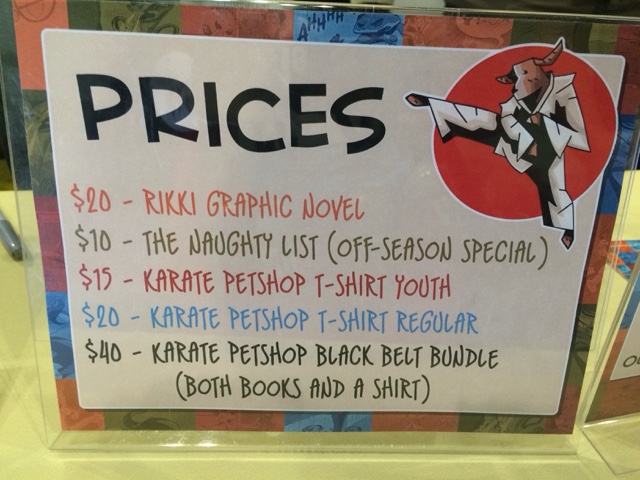 AHHHH
PRICES
$20 - RIKKI GRAPHIC NOVEL
$10 - THE NAUGHTY LIST (OFF-SEASON SPECIAL)
$15 - KARATE PETSHOP T-SHIRT YOUTH
$20 - KARATE PETSHOP T-SHIRT REGULAR
$40 - KARATE PETSHOP BLACK BELT BUNDLE
(BOTH BOOKS AND A SHIRT)